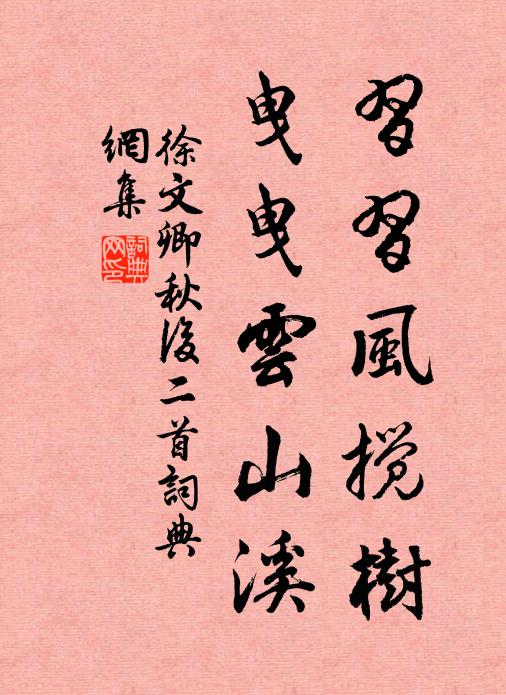 習習風攪樹
曳曳雲山溪
徐文卿秋後二首詞典
網集
詞典
网印